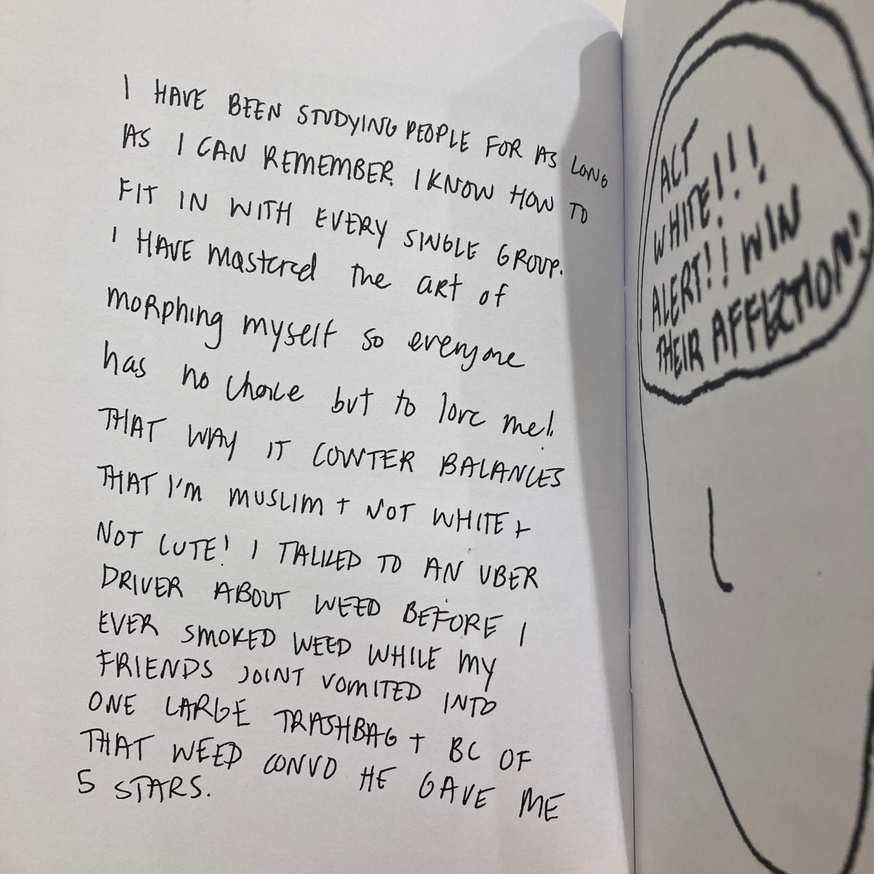 I HAVE BEEN STUDYING PEOPLE FOR AS LONG
AS I CAN REMEMBER. I KNOW HOW TO
FIT IN WITH EVERY SINGLE GROUP.
I HAVE mastered the art of
morphing myself so everyone
has no choice but to love me!
THAT WAY IT COUNTER BALANCES
THAT I'M MUSLIM + NOT WHITE +
NOT CUTE! I TALKED TO AN UBER
DRIVER ABOUT WEED BEFORE I
EVER SMOKED WEED WHILE MY
FRIENDS JOINT VOMITED INTO
ONE LARGE TRASHBAG + BC OF
THAT WEED CONVO HE GAVE ME
5 STARS.
ACT
WHITE!!!
ALERT!! WIN
THEIR AFFECTION!